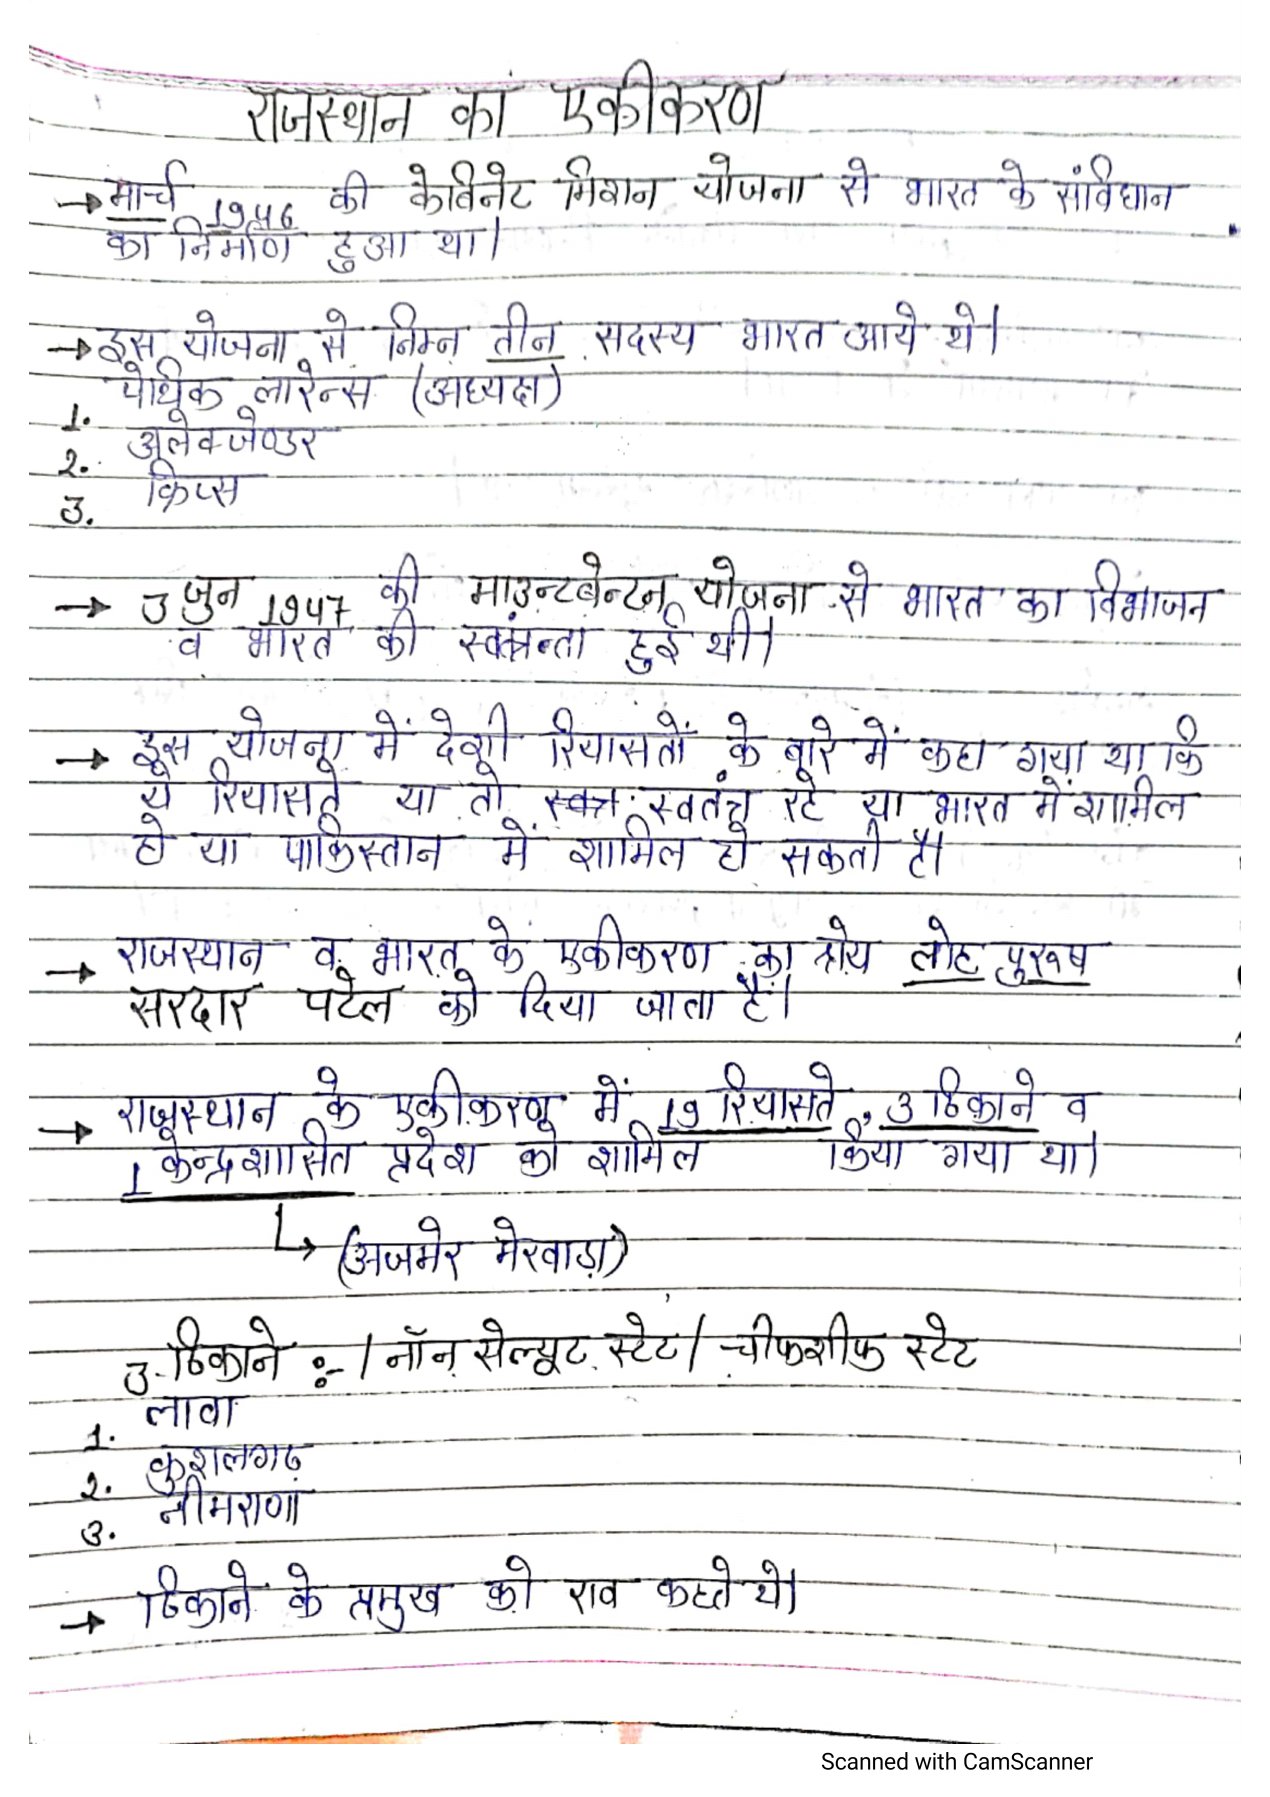 राजस्थान का एकीकरण
→ मार्च 1946 की केबिनेट मिशन योजना से भारत के संविधान
का निर्माण हुआ था।
→ इस योजना से निम्न तीन सदस्य भारत आये थे।
1. पेथिक लारेन्स (अध्यक्ष)
2. अलेक्जेण्डर
3. क्रिप्स
→ 3 जुन 1947 की माउन्टबेन्टन योजना से भारत का विभाजन
व भारत की स्वतंत्रन्ता हुई थी।
→ इस योजना में देशी रियासतों के बारे में कहा गया था कि
ये रियासते या तो स्वतंत्र रहे या भारत में शामिल
हो या पाकिस्तान में शामिल हो सकती है।
→ राजस्थान व भारत के एकीकरण का श्रेय लोह पुरूष
सरदार पटेल को दिया जाता है।
→ राजस्थान के एकीकरण में 19 रियासते, 3 ठिकाने व
1 केन्द्रशासित प्रदेश को शामिल किया गया था।
↳ (अजमेर मेरवाड़ा)
3 ठिकाने :- / नॉन सेल्यूट स्टेट / चीफशीफ स्टेट
1. लावा
2. कुशलगढ़
3. नीमराणा
→ ठिकाने के प्रमुख को राव कहते थे।
Scanned with CamScanner